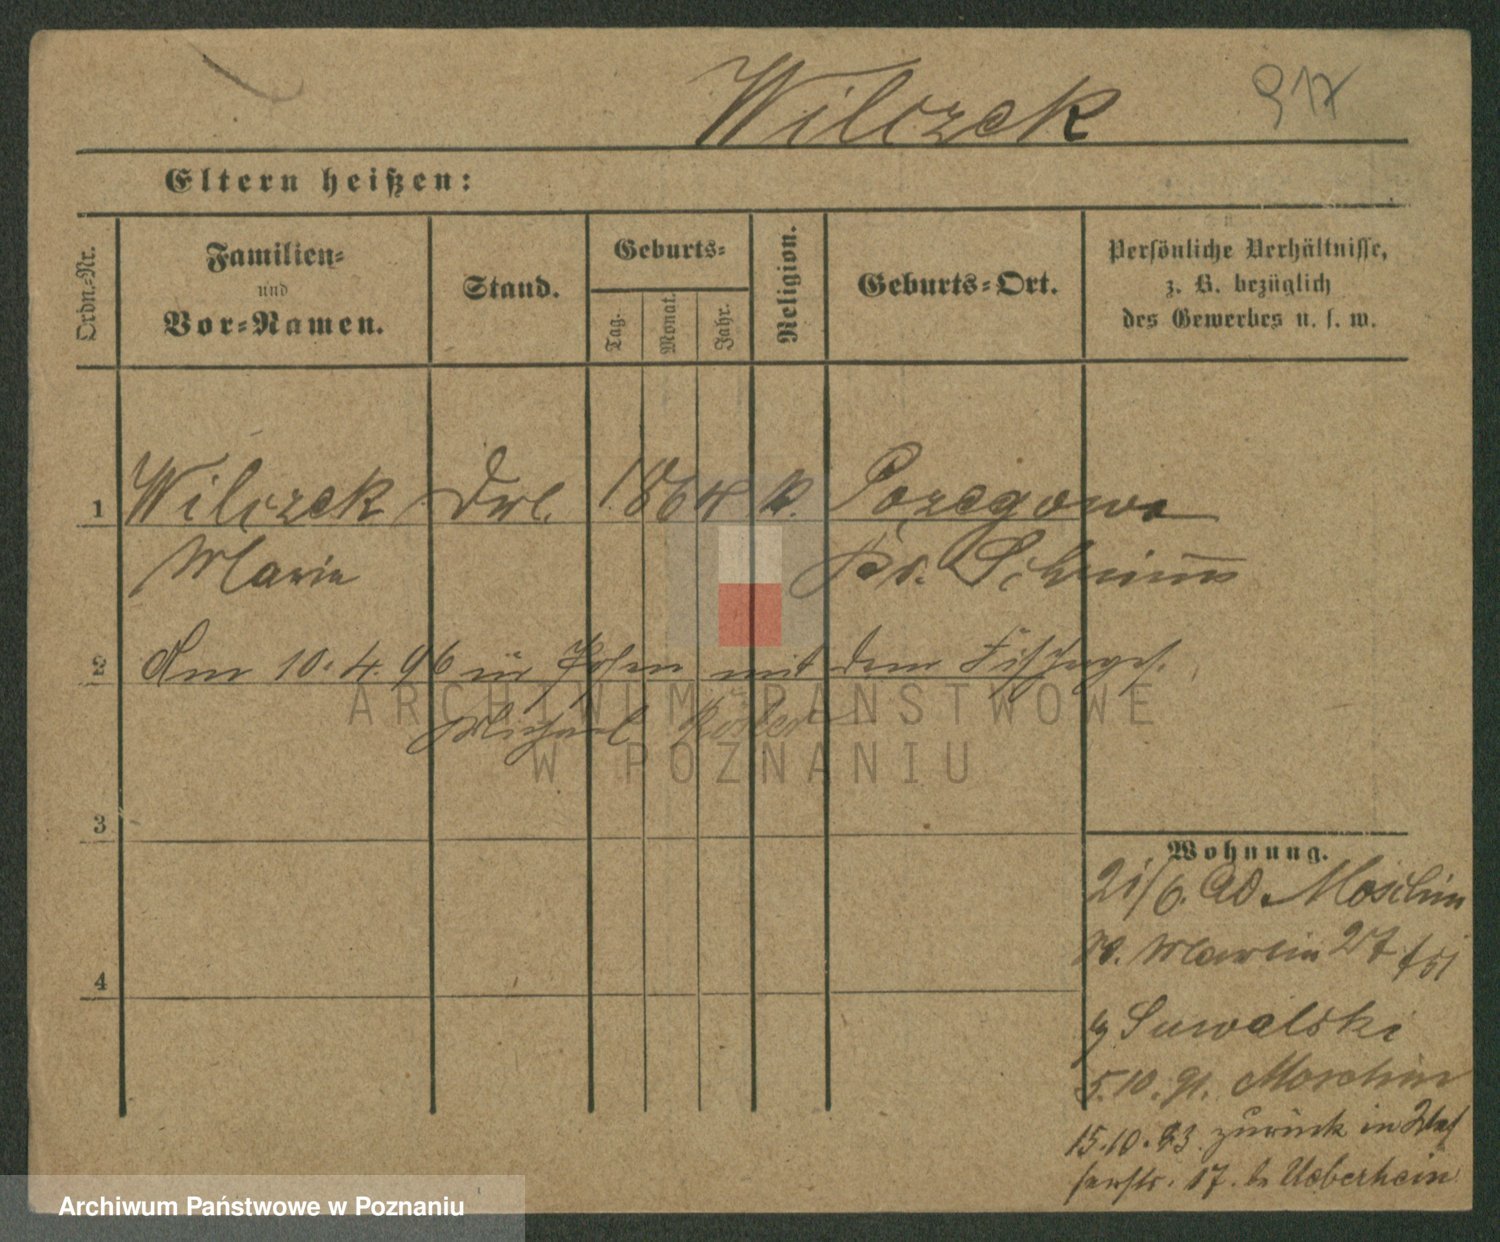 Wilczek 917
Eltern heißen:
Ordn.-Nr.
Familien-
und
Vor-Namen.
Stand.
Geburts-
Tag.
Monat.
Jahr.
Religion.
Geburts-Ort.
Persönliche Verhältnisse,
z. B. bezüglich
des Gewerbes u. s. w.
1 Wilczek 1864 k. Pozegowo
Marie Kr. Schrimm
2 Am 10.4.96 in Posen mit dem
Michael
3
4
Wohnung.
21/6. 90. Moschin
St. Martin 27
b Suwalski
5.10.91. Moschin
15.10.93 zurück in
17. b. Ueberhein
ARCHIWUM PAŃSTWOWE
W POZNANIU
Archiwum Państwowe w Poznaniu